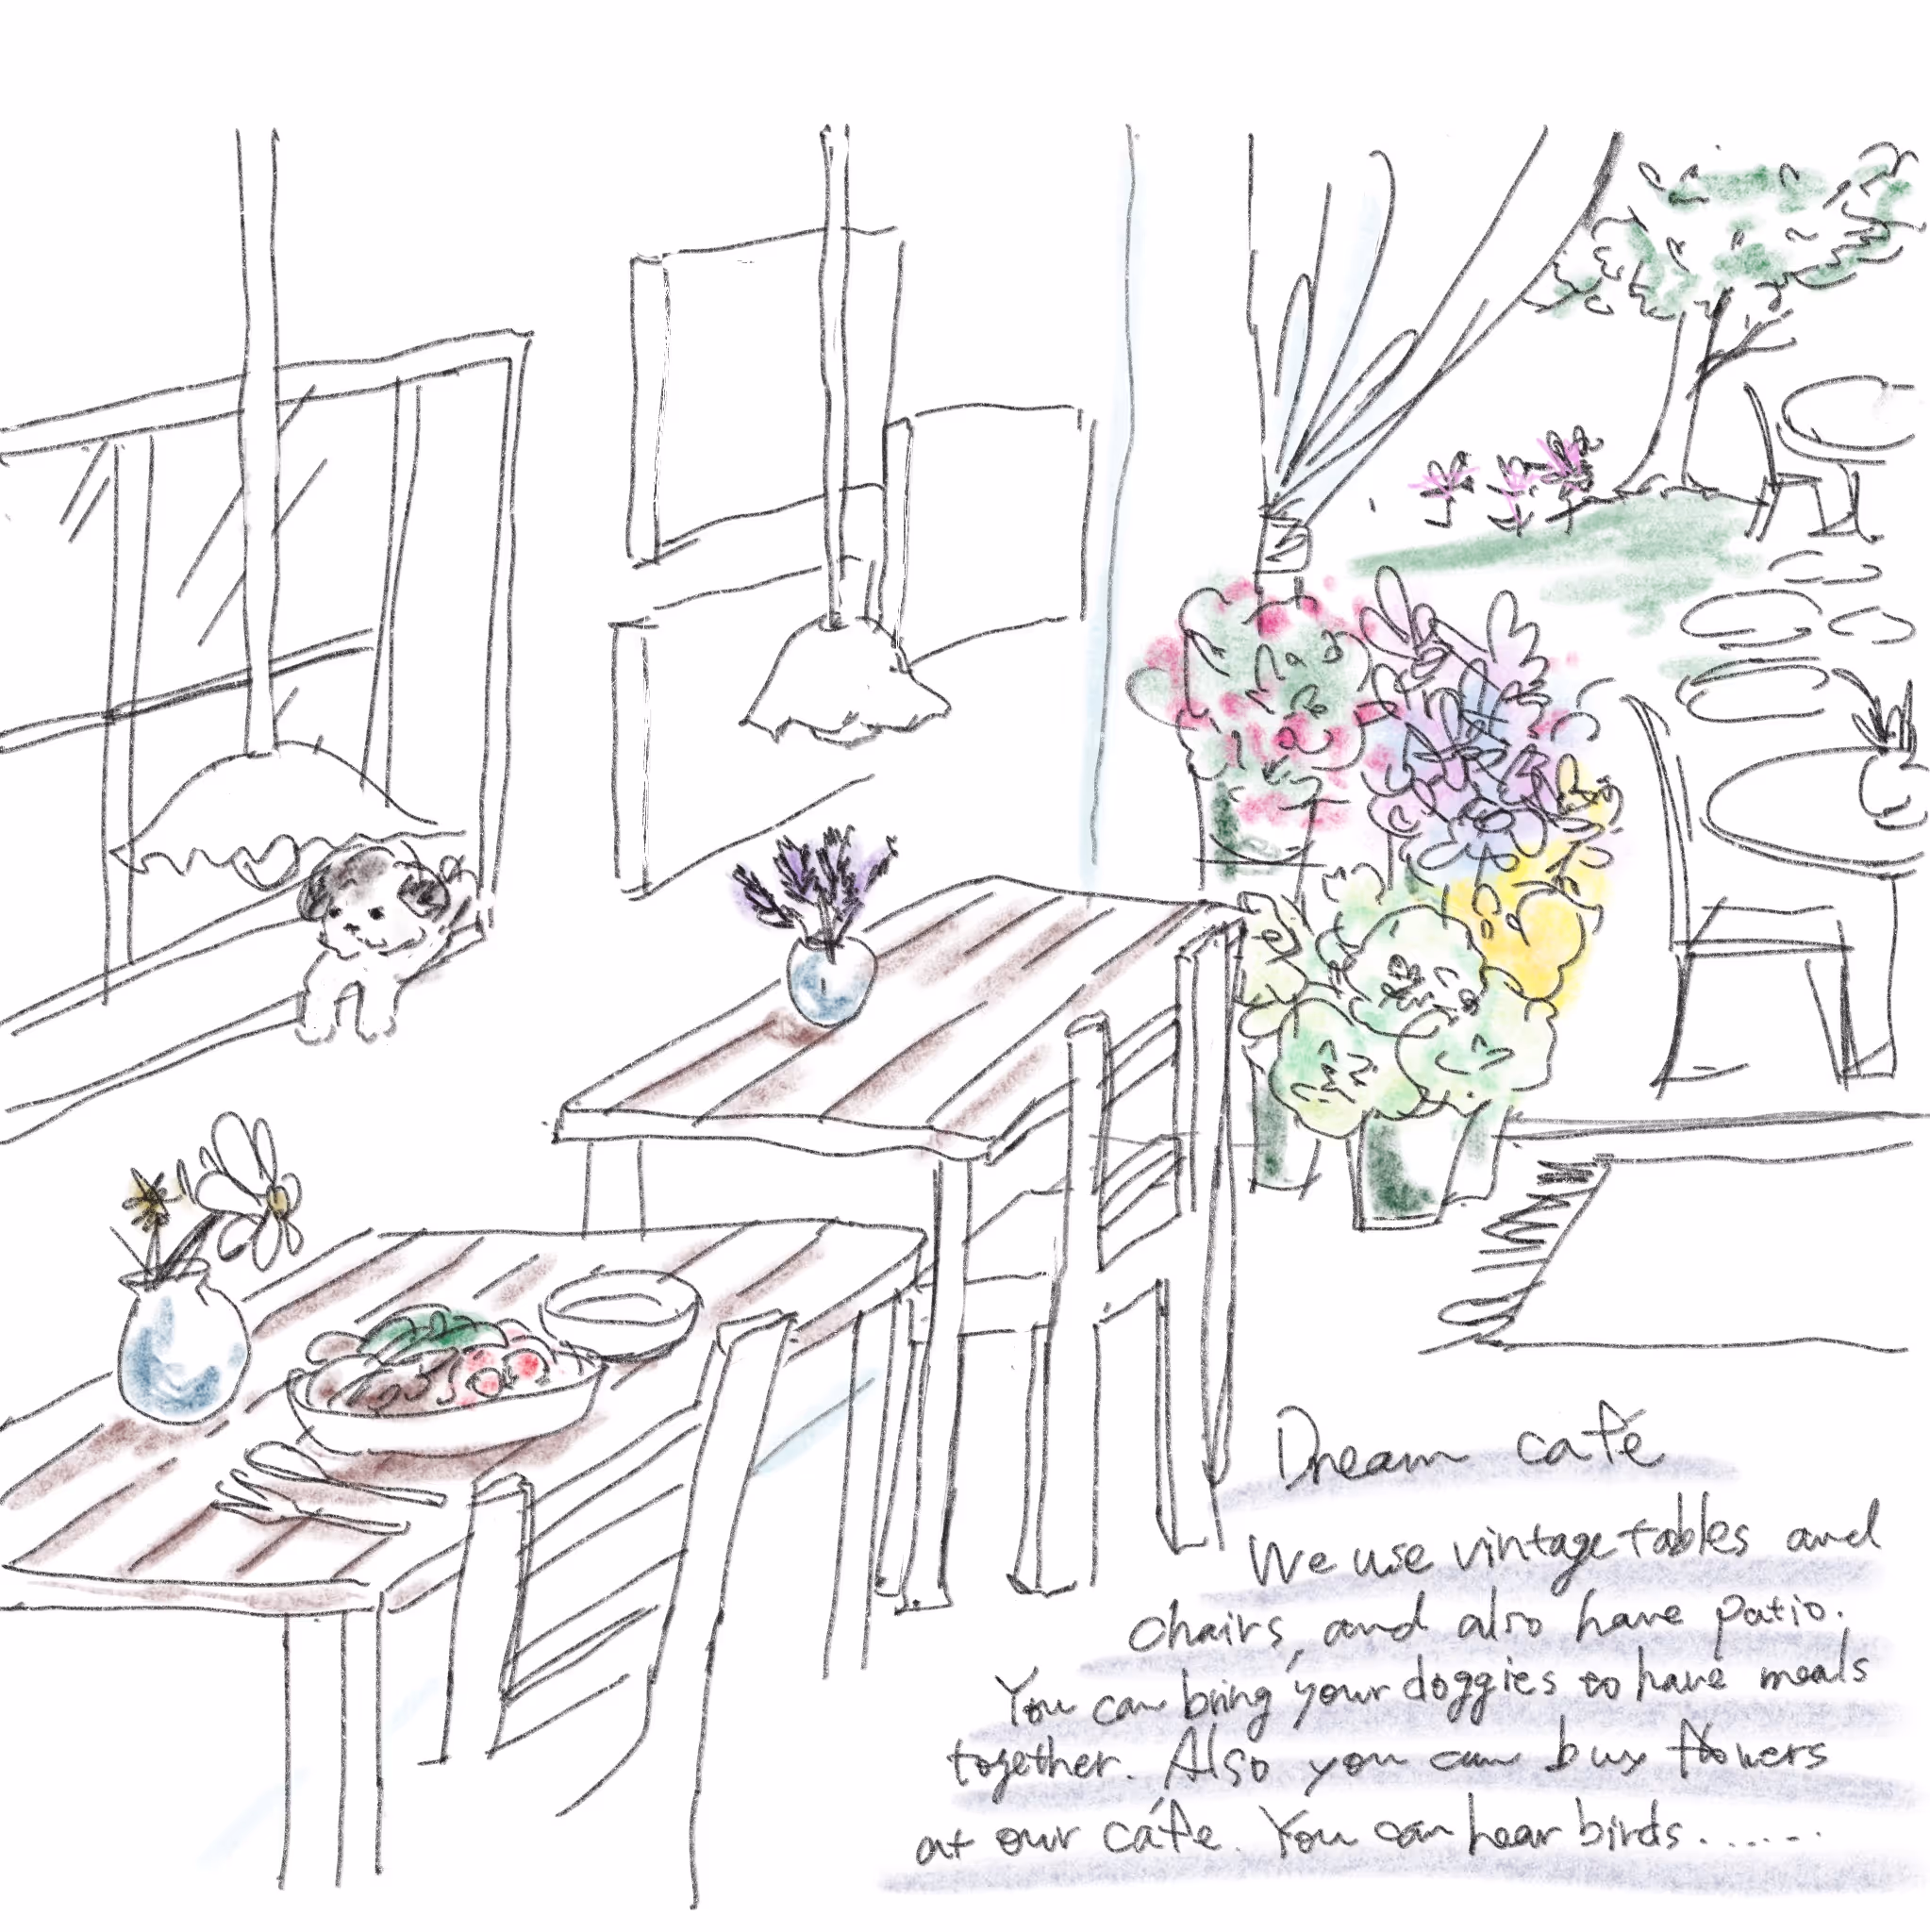 Dream café
We use vintage tables and
chairs, and also have patio.
You can bring your doggies to have meals
together. Also you can buy flowers
at our cáfe. You can hear birds......